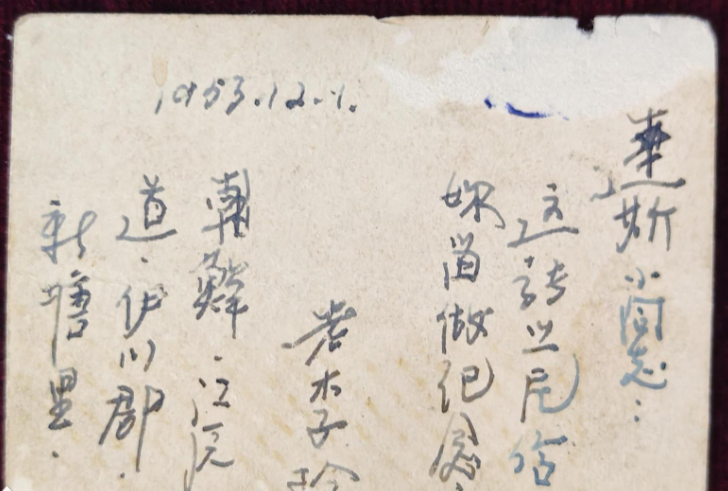 莲斯小同志：
这张照尼给
妳留做纪念.
李木子玲
朝鲜.江原
道.伊川郡.
新塘里.
1953.12.1.